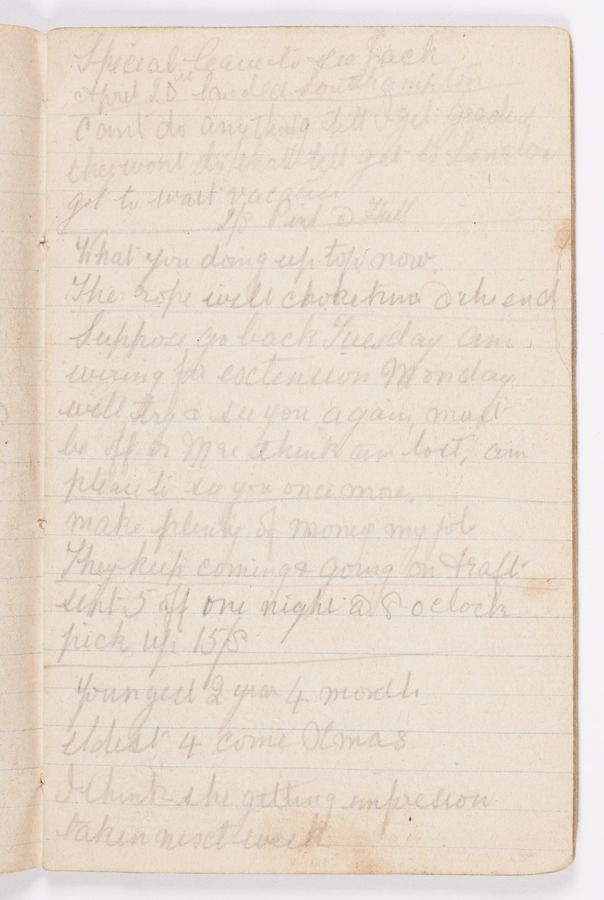 Special leave to see Jack
April 20th landed Southampton
Cant do anything till I get graded
they wont do that till get to London
got to wait vacacies
2/8 Pint
What you doing up top now.
The rope will choke him @ the end
Suppose go back Tuesday am
wiring for exctension Monday
will try & see you again, must
be off or Mae think am lost, am
please to see you once more.
make plenty of money my job
They keep coming & going on draft
sent 5 off one night @ 8 oclock
pick up 15/8
Youngest 2 year 4 month
eldest 4 come Xmas
I think she getting impresion
taken next week